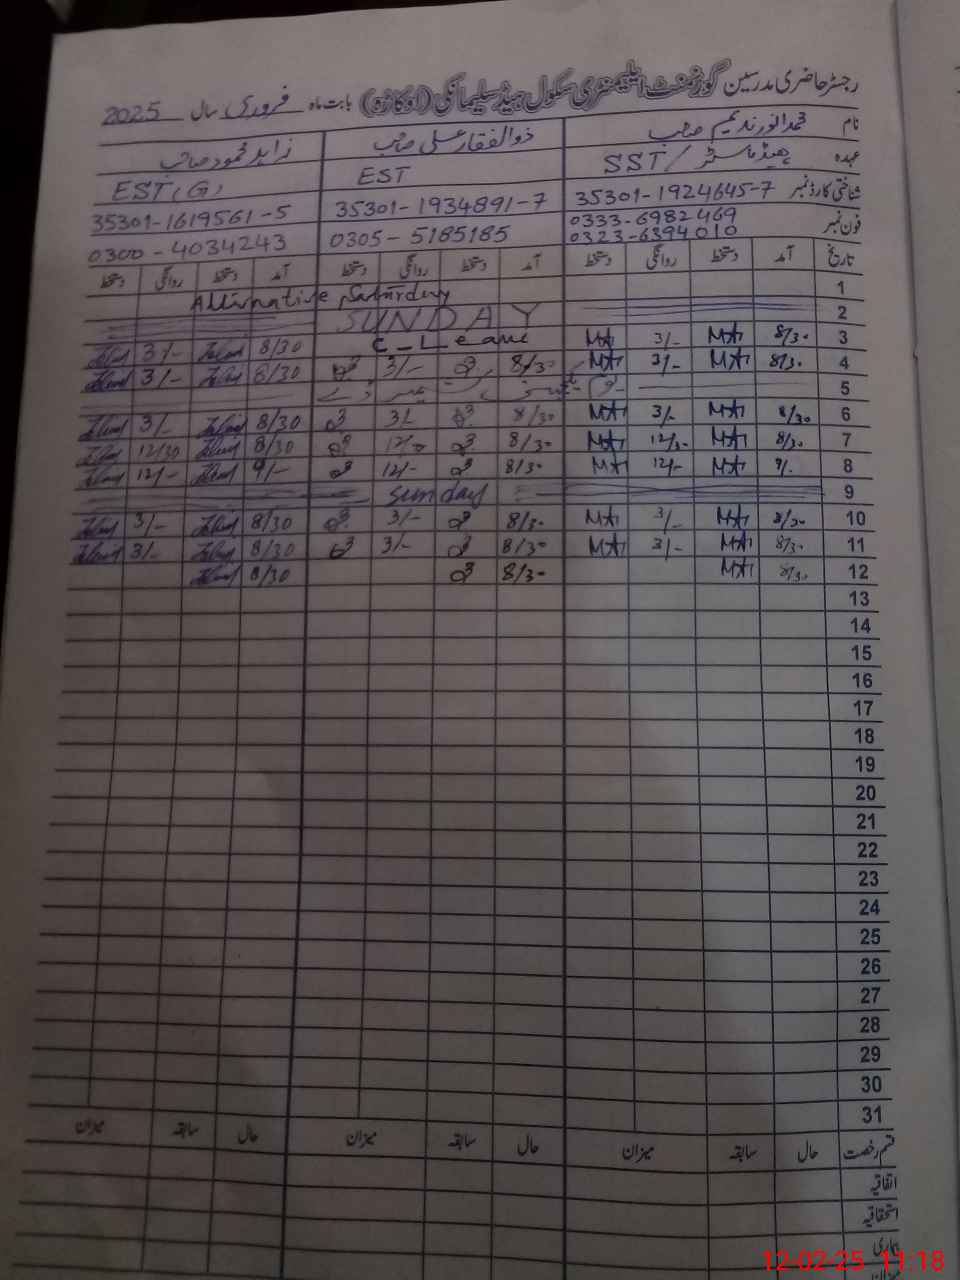 رجسٹر حاضری مدرسین گورنمنٹ ایلیمنٹری سکول ہیڈ سلیمانکی (اوکاڑہ) بابت ماہ فروری سال 2025
نام محمد انور ندیم صاحب ذوالفقار علی صاحب زاہد محمود صاحب
عہدہ SST/ہیڈ ماسٹر EST EST(G)
شناختی کارڈ نمبر 35301-1924645-7 35301-1934891-7 35301-1619561-5
فون نمبر 0333-6982469 0323-6394010 0305-5185185 0300-4034243
تاریخ آمد دستخط روانگی دستخط آمد دستخط روانگی دستخط آمد دستخط روانگی دستخط
1 Alternative Saturday
2 SUNDAY
3 8/30 3/- C-Leave 8/30 3/-
4 8/30 3/- 8/30 3/- 8/30 3/-
5
6 8/30 3/- 8/30 3/- 8/30 3/-
7 8/30 12/30 8/30 8/30 12/30
8 9/- 12/- 8/30 12/- 9/- 12/-
9 Sunday
10 8/30 3/- 8/30 3/- 8/30 3/-
11 8/30 3/- 8/30 3/- 8/30 3/-
12 8/30 8/30 8/30
13
14
15
16
17
18
19
20
21
22
23
24
25
26
27
28
29
30
31
قسم رخصت حال سابقہ میزان حال سابقہ میزان حال سابقہ میزان
اتفاقیہ
استحقاقیہ
بیماری
12-02-25 11:18